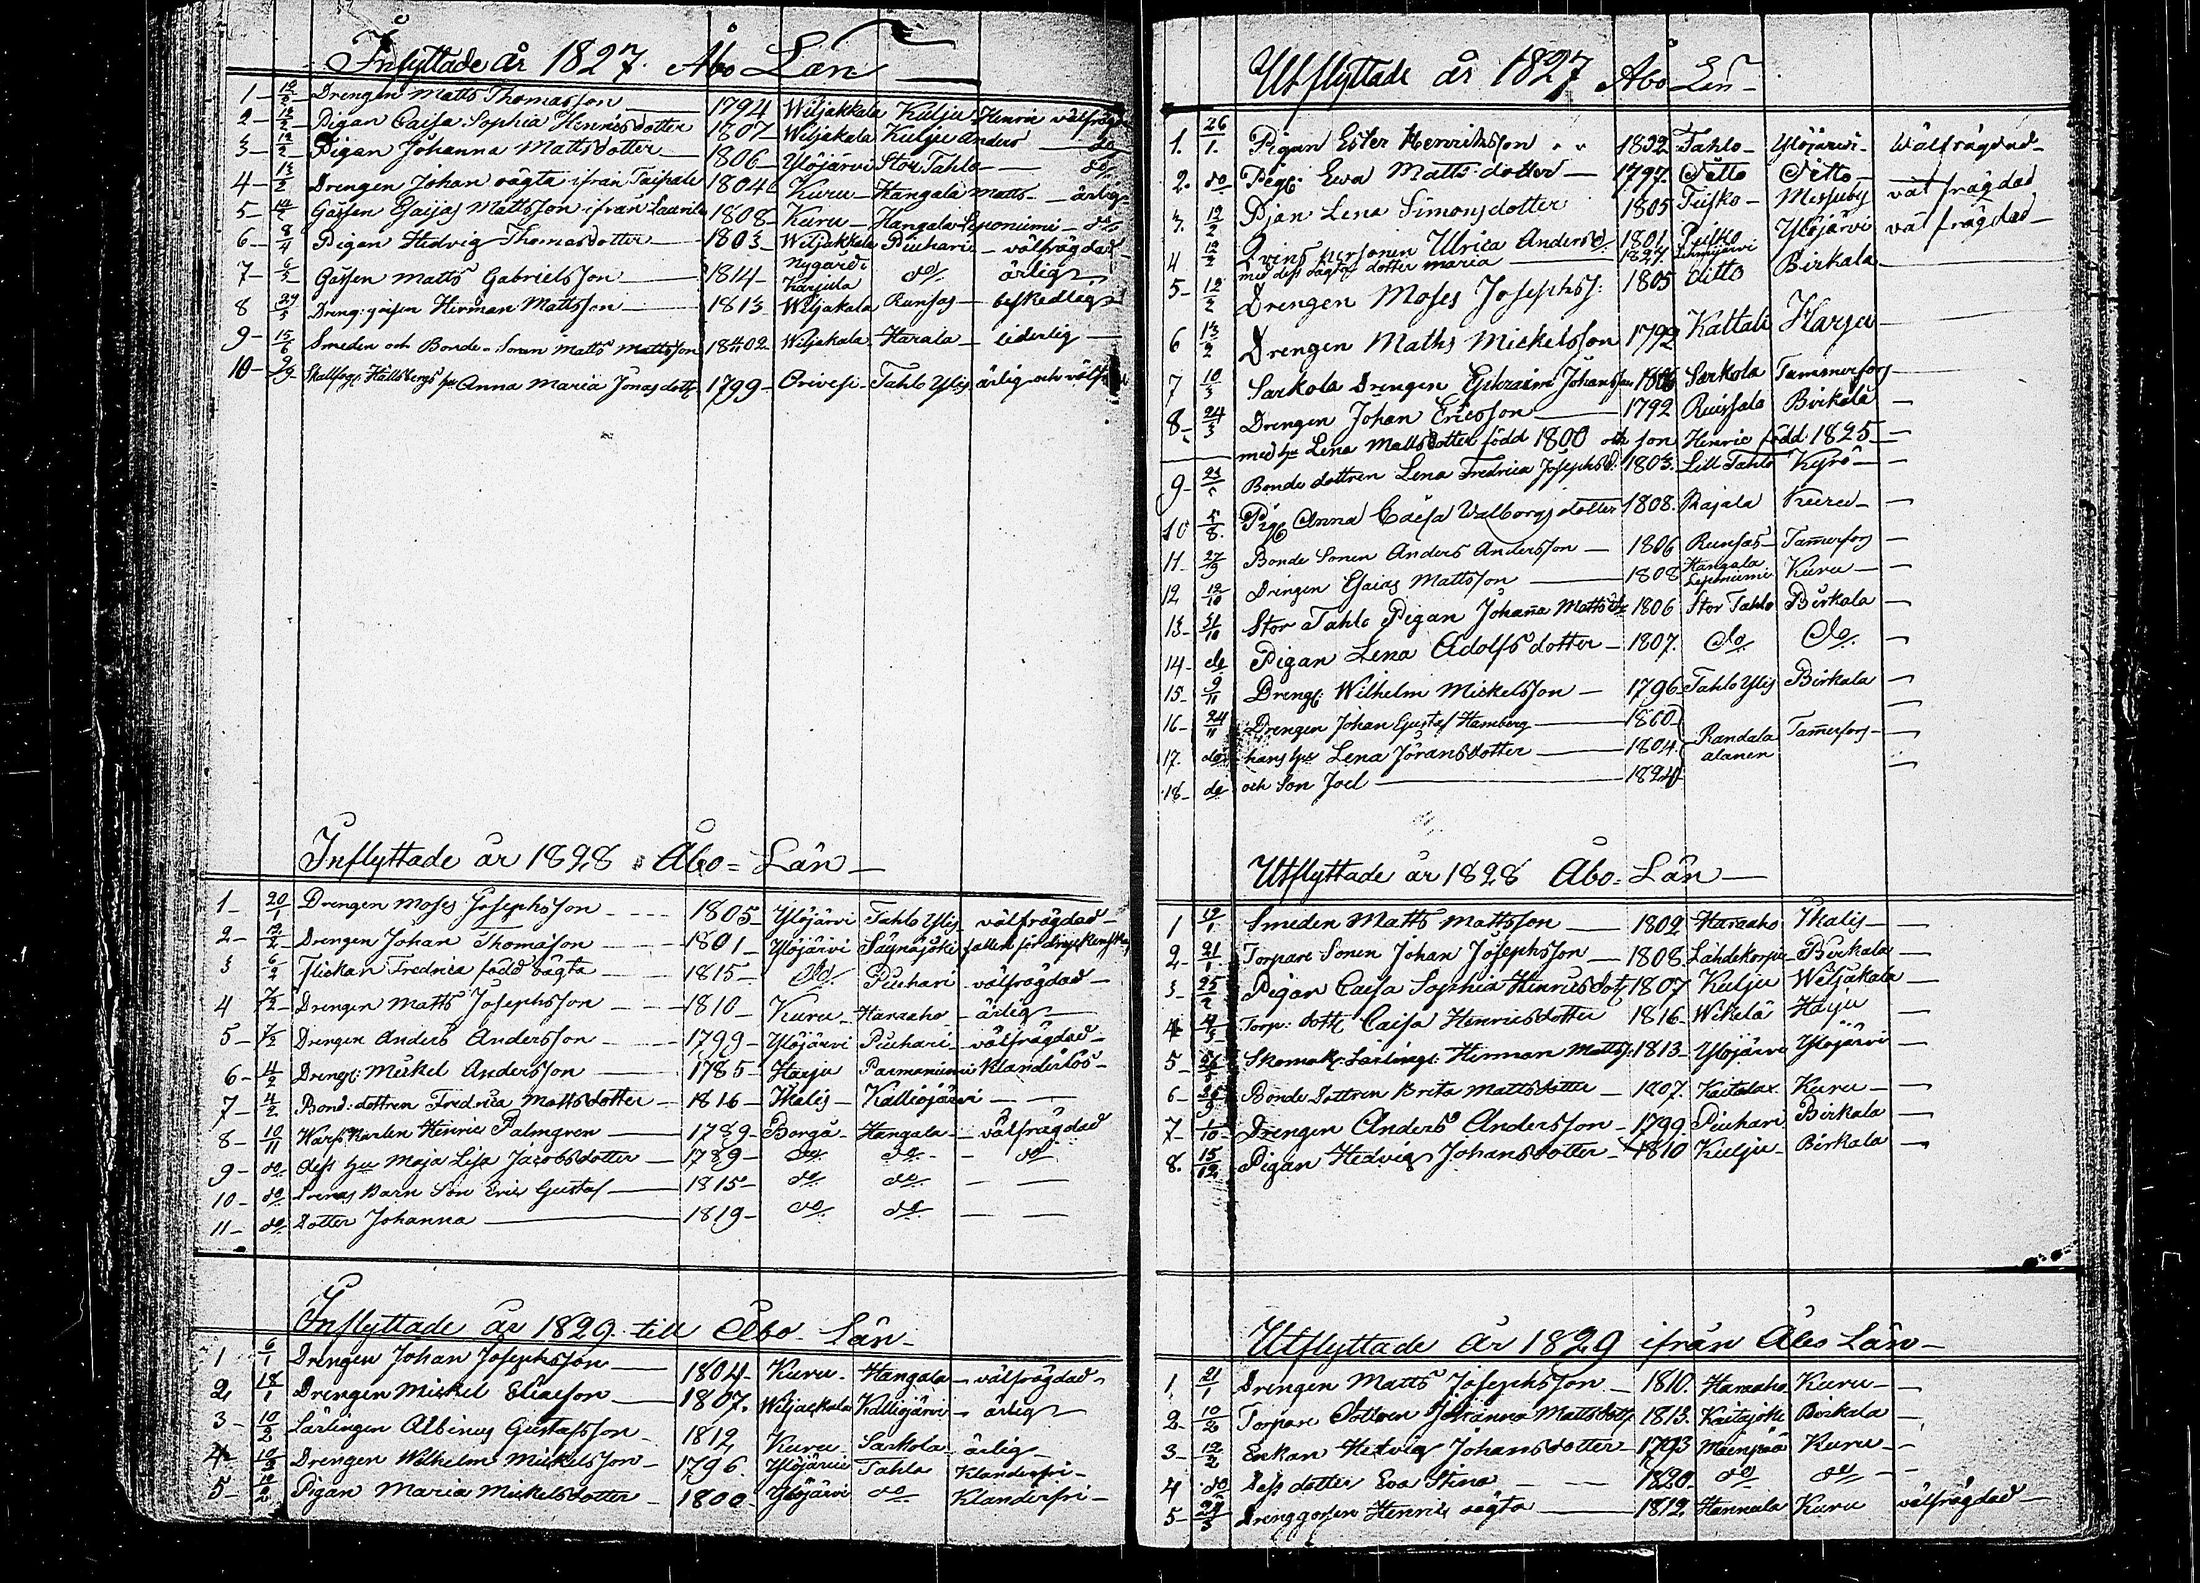 Inflyttade år 1827. Åbo Län
1 - 12/2 - Drengen Matts Thomasson 1794 Wiljakkala Kulju Henric välfrägd
2 - 12/2 - Pigan Caisa Sophia Henricsdotter 1807 Wiljakala Kulju Anders do
3 - 12/2 - Pigan Johanna Mattsdotter 1806 Ylöjärvi Stor Tahlo do
4 - 13/2 Drengen Johan oägta ifrån Taipale 1804 Kuru Hangala Matts ärlig
5 - 14/2 Gåssen Esaijas Mattsson ifrån 1808 Kuru Hangala Leponiemi do
6 - 8/4 Pigan Hedvig Thomasdotter 1803 Wiljakkala Piuhari välfrägdad
7 - Gåssen Matts Gabrielsson 1814 Nygård: Karjula do ärlig
8 29/5 Dreng: gåssen Hirman Mattsson 1813 Wiljakala Runsas beskedlig
9 - 15/6 Smeden och Bonde-Sonen Matts Mattsson 1802 Wiljakala Harala liderlig
10 - 9/9 Hallsbergs hu Anna Maria Jonasdott 1799 Orivesi Tahlo Ylis ärlig och
Inflyttade år 1828 Åbo Län
1 - 20/1 Drengen Moses Josephsson 1805 Ylöjärvi Tahlo Ylis välfrägdad
2 - 12/2 Drengen Johan Thomasson 1801 Ylöjärvi Säynäjoki fallen för
3 6/2 Flickan Fredrica född oägta 1815 do Piuhari välfrägdad
4 7/2 Drengen Matts Josephsson 1810 Kuru Haraaho ärlig
5 - Drengen Anders Andersson 1799 Ylöjärvi Piuhari välfrägdad
6 - 4/2 Dreng: Mickel Andersson 1785 Harju Parmaniemi Klanderlös
7 - 4/2 Bond: dottren Fredrica Mattsdotter 1816 Ikalis Kalliojärvi
8 - 10/11 Karlen Henric Palmgren 1789 Borgå Hangala välfrägdad
9 - do dess hu Maja Lisa Jacobsdotter 1789 do do do
10 - do Barn Son Eric Gustaf 1815 do do
11 - do Dotter Johanna 1819 do do
Inflyttade år 1829 till Åbo Län
1 6/1 Drengen Johan Josephsson 1804 Kuru Hangala välfrägdad
2 18/1 Drengen Mickel Eliaeson 1807. Wiljackala Kalliojärvi ärlig
3 - 10/2 Lärlingen Albinus Gustafsson 1812 Kuru Sarkola ärlig
4 - 10/2 Drengen Wilhelm Mickelsson 1796 Ylöjärvi Tahlo Klanderfri
5 - 12/2 Pigan Maria Mickelsdotter 1800 Ylöjärvi do Klanderfri
Utflyttade år 1827 Åbo Län
1. 26/1. Pigan Ester Henriksson 1802 Tahlo Ylöjärvi Wälfrägdad
2. do Pig: Ewa Matts dotter 1797 Ditto Ditto
3. 12/2 Pjan Lena Simonsdotter 1805 Teisko Messuby väl frägdad
4 12/2 Qvins personen Ulrica Andersd 1801 Ylöjärvi väl frägdad
med dess oägta dotter Maria 1827
5 - 12/2 Drengen Moses Josephss: 1805 ditto Birkala
6 13/2 Drengen Maths Mickelsson 1792 Kaltali Harju
7 10/3 Sarkola Drengen Ephraim Johansson 1806 Sarkola Tammerfors
8 - 24/3 Drengen Johan Ericsson 1792 Ruissala Birkala
med hu Lena Mattsdotter född 1800 och son Henric född 1825
9 - Bonde dottren Lena Fredrica Josephsd. 1803. Lill Tahlo Kyrö
10 5/8. Pig: Anna Caisa Walborgsdotter 1808. Majala Kuru
11 - 27/9 Bonde Sonen Anders Andersson 1806 Runsas Tamerfors
12 12/10 Drengen Esaias Mattsson 1808 Hangala Leponiemi Kuru
13 - 31/10 Stor Tahlo Pigan Johana Mattsdtr 1806 Stor Tahlo Birkala
14 - do Pigan Lena Adolfsdotter 1807. do do
15 - 9/11 Dreng: Wilhelm Mickelsson 1796 Tahlo Ylis Birkala
16 - 24/11 Drengen Johan Gustaf Hamberg 1800 Randala alanen Tamerfors
17. do hans hu Lena Jöransdotter 1804
18 - do och Son Joel 1824
Utflyttade år 1828 Åbo Län
1 12/1 Smeden Matts Mattsson 1802 Haraaho Ikalis
2 - 21/1 Torpare Sonen Johan Josephsson 1808. Lähdekorpi Birkala
3 - 25/2 Pigan Caisa Sophia Henricsdotr 1807 Kulju Wiljakala
4 Torp: dottr Caisa Henricsdotter 1816 Wikelä Harju
5 - Skomak: Lärlingl: Herman Mattss: 1813 Ylöjärvi Ylöjärvi
6 - Bonde Dottren Brita Mattsdotter 1807. Kaitalax Kuru
7 - 1/10 Drengen Anders Andersson 1799 Piuhari Birkala
8. 15/12 Pigan Hedvig Johansdotter 1810 Kulju Birkala
Utflyttade år 1829 ifrån Åbo Län
1. 21/1 Drengen Matts Josephsson 1810. Haraaho Kuru
2 10/2 Torpare Dottren Johanna Mattsdottr 1813. Kaitajoki Borkala
3 - 12/2 Enkan Hedvig Johansdotter 1793 Mäenpää Kuru
4 do Dess dotter Eva Stina 1820 do do
5 - Drenggossen Henric oägta 1812 Hannula Kuru välfrägdad